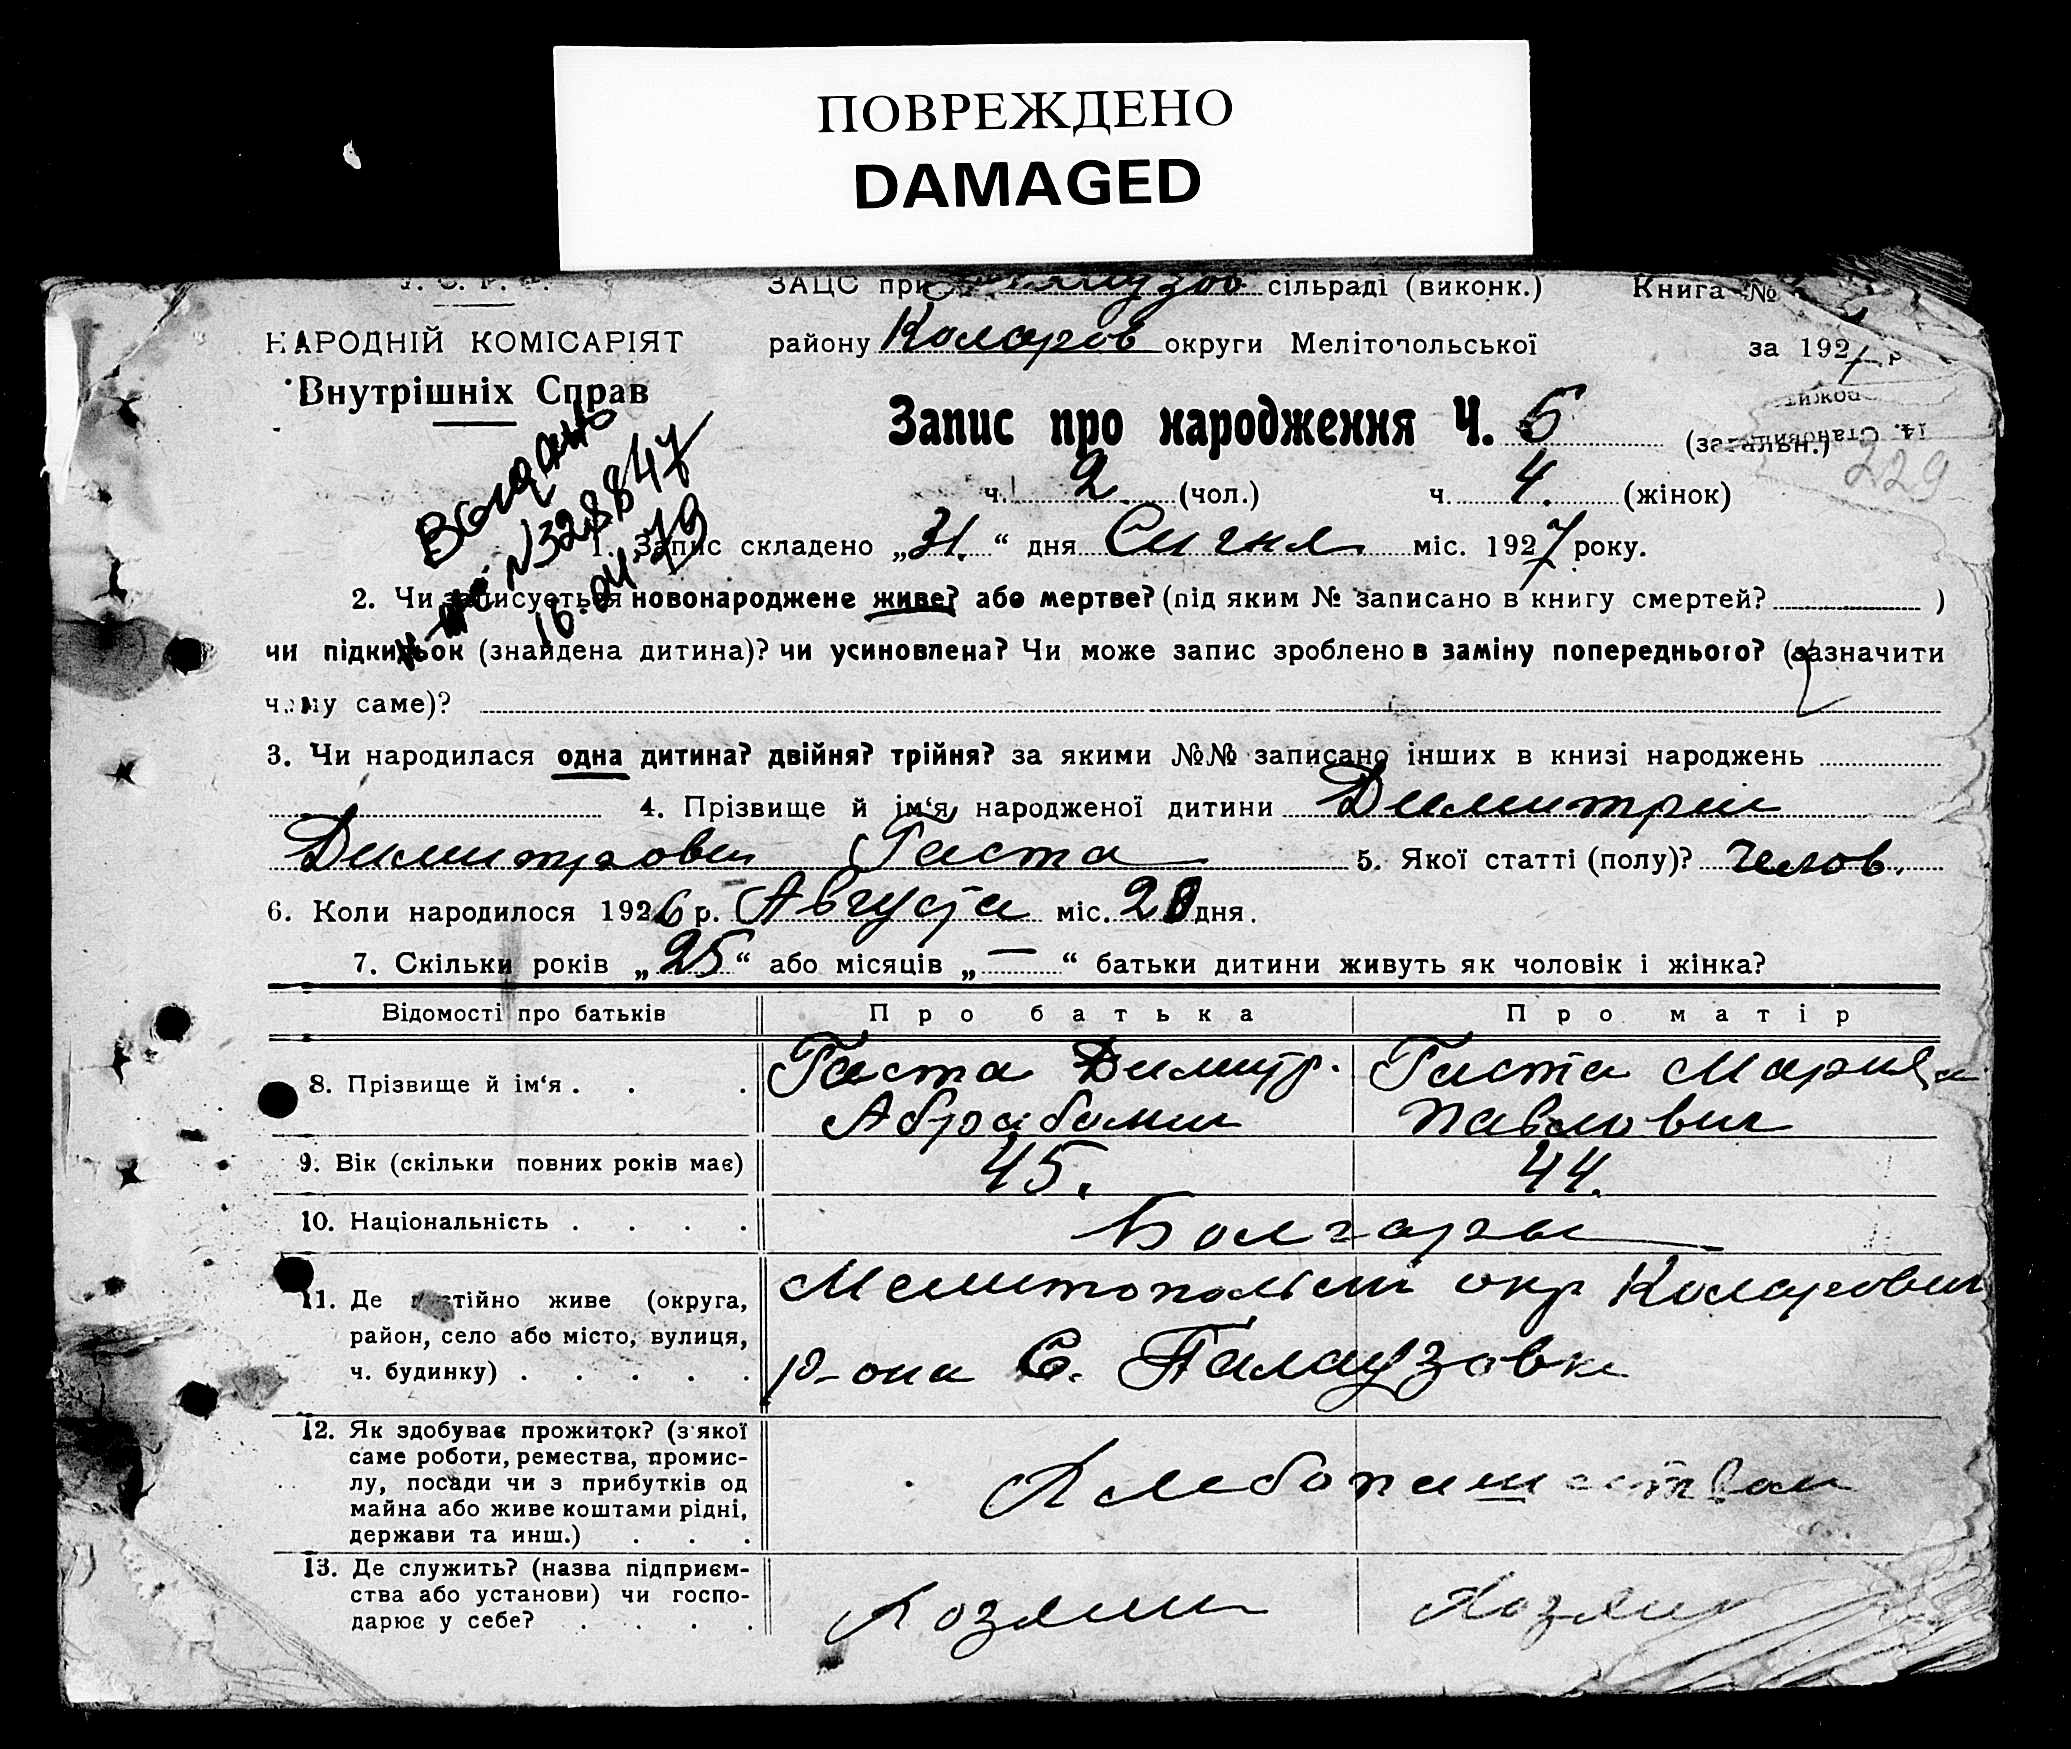 ПОВРЕЖДЕНО
DAMAGED
ЗАЦС при сільраді (виконк.) Книга №
НАРОДНІЙ КОМІСАРІЯТ
Внутрішніх Справ
району Коларов округи Мелітопольської за 1927 р
Запис про народження Ч. 6 (загальн.)
229
ч. 2 (чол.) ч. 4. (жінок)
Видано
№328847
16.04.79
1. Запис складено „31.“ дня міс. 1927 року.
2. Чи записується новонароджене живе? або мертве? (під яким № записано в книгу смертей? )
чи підкидьок (знайдена дитина)? чи усиновлена? Чи може запис зроблено в заміну попереднього? (зазначити
чому саме)?
3. Чи народилася одна дитина? двійня? трійня? за якими №№ записано інших в книзі народжень
4. Прізвище й ім‘я народженої дитини Димитрий
Димитрович Гаста 5. Якої статті (полу)? челов.
6. Коли народилося 1926 р. Августа міс. 20 дня.
7. Скільки років „25“ або місяців „—“ батьки дитини живуть як чоловік і жінка?
Відомості про батьків Про батька Про матір
8. Прізвище й ім‘я . . . Гаста Димитр. Гаста Мария
Павлович
9. Вік (скільки повних років має) 45. 44.
10. Національність . . . . Болгары
11. Де постійно живе (округа,
район, село або місто, вулиця,
ч. будинку) . . . . .
Мелитопольский окр Коларовский
р-она С. Палаузовка
12. Як здобуває прожиток? (з якої
саме роботи, ремества, промис-
лу, посади чи з прибутків од
майна або живе коштами рідні,
держави та инш.) . . .
Хлебопашеством
13. Де служить? (назва підприєм-
ства або установи) чи госпо-
дарює у себе? . . . .
Хозяин Хозяин